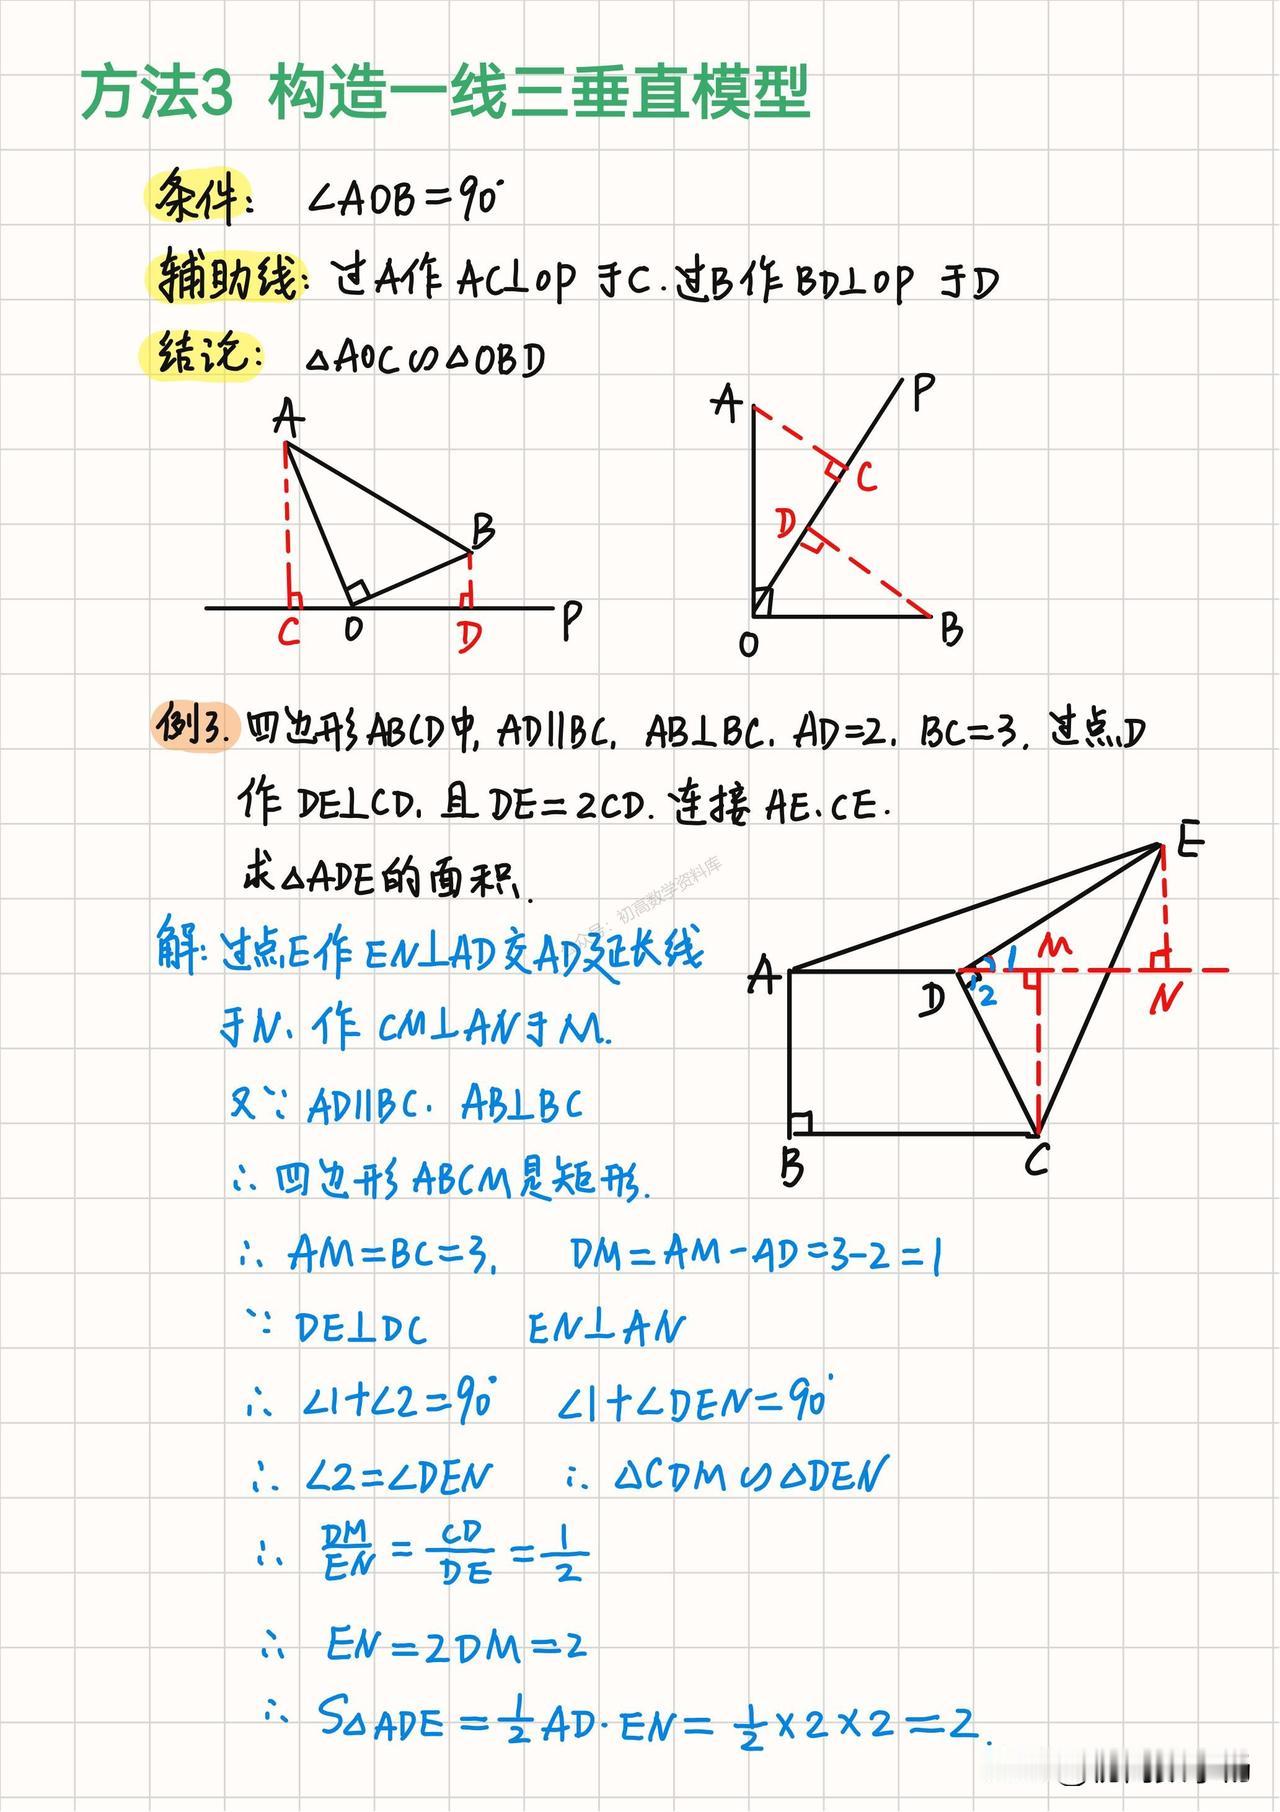 方法3 构造一线三垂直模型
条件: ∠AOB=90°
辅助线: 过A作 AC⊥OP 于C.过B作 BD⊥OP 于D
结论: △AOC∽△OBD
A
B
C
O
D
P
A
P
C
D
O
B
例3. 四边形ABCD中, AD∥BC, AB⊥BC, AD=2, BC=3, 过点D
作 DE⊥CD, 且 DE=2CD. 连接 AE、CE.
求△ADE的面积.
众号：初高数学资料库
解: 过点E作 EN⊥AD 交AD延长线
于N, 作 CM⊥AN于M.
又∵ AD∥BC. AB⊥BC
∴ 四边形 ABCM是矩形.
∴ AM=BC=3, DM=AM-AD=3-2=1
∵ DE⊥DC EN⊥AN
∴ ∠1+∠2=90° ∠1+∠DEN=90°
∴ ∠2=∠DEN ∴ △CDM∽△DEN
∴ DM/EN = CD/DE = 1/2
∴ EN=2DM=2
∴ S△ADE = 1/2 AD·EN = 1/2×2×2=2.
E
A
D
1
2
M
N
B
C